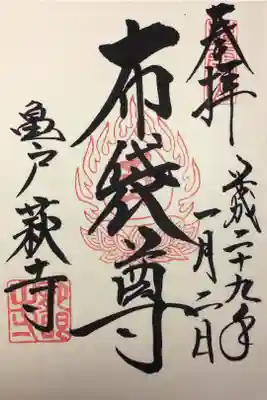 奉拝
平成二十九年
一月二日
布袋尊
亀戸萩寺